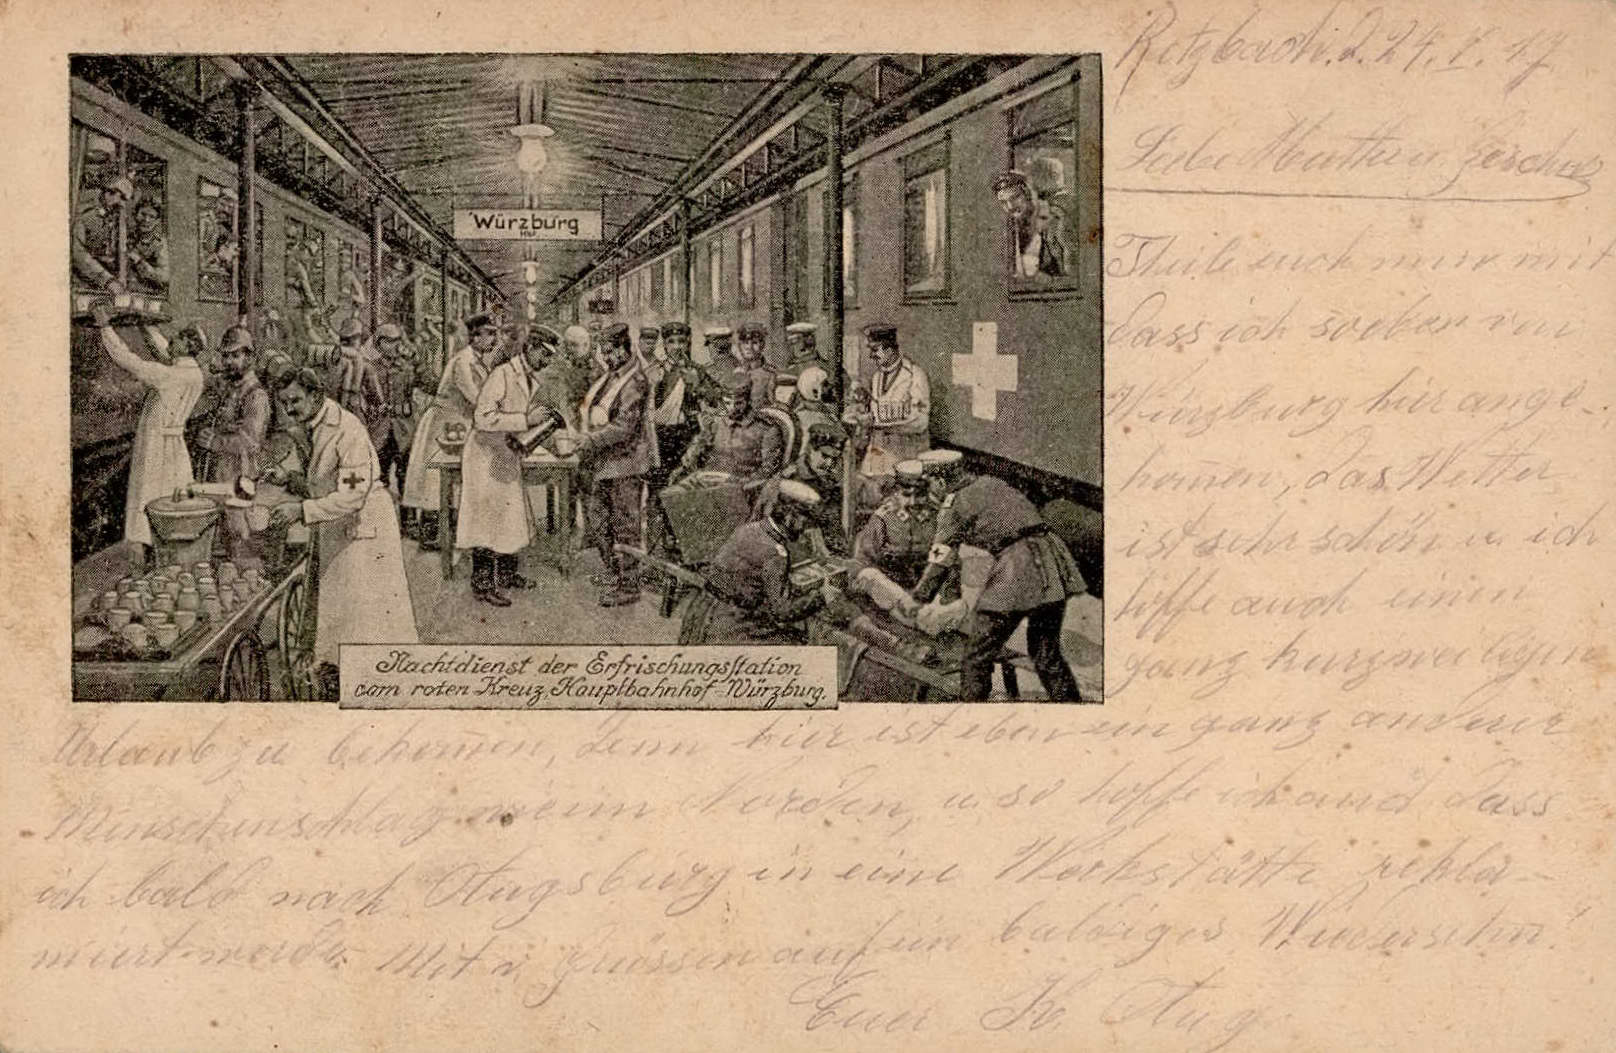 Retzbach. d. 24. V. 17
Liebe Mutter, Geschw.
Theile euch nur mit
dass ich soeben von
Würzburg hier ange-
kom̅en, das Wetter
ist sehr schön u. ich
hoffe auch einen
ganz kurzweiligen
Würzburg
Hbf.
Nachtdienst der Erfrischungsstation
vom roten Kreuz, Hauptbahnhof-Würzburg.
Urlaub zu bekom̅en, denn hier ist eben ein ganz anderer
Menschenschlag wie im Norden, u. so hoffe ich auch dass
ich bald nach Augsburg in eine Werkstätte rekla-
miert werde. Mit v. Grüssen auf ein baldiges Wiedersehn!
Euer Aug